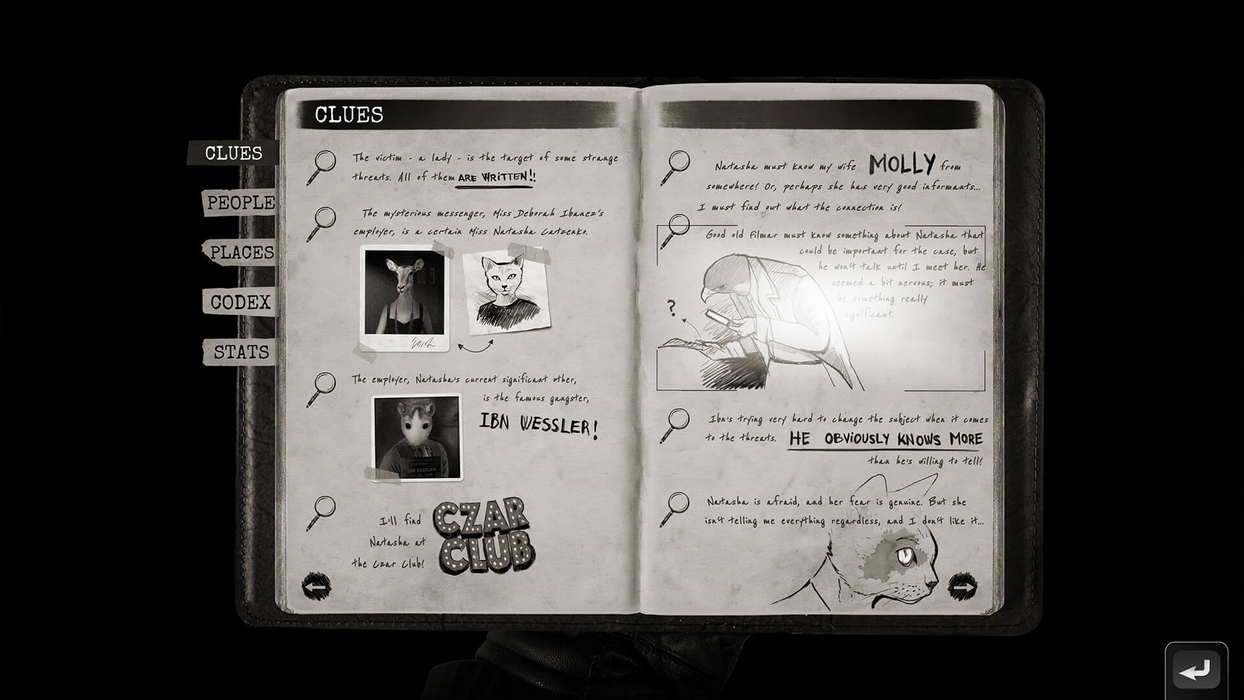 CLUES
CLUES
PEOPLE
PLACES
CODEX
STATS
The victim - a lady - is the target of some strange
threats. All of them ARE WRITTEN!!
The mysterious messenger, Miss Deborah Ibanez's
employer, is a certain Miss Natasha Catzenko.
The employer, Natasha's current significant other,
is the famous gangster,
IBN WESSLER!
I'll find
Natasha at
the Czar Club!
CZAR
CLUB
Natasha must know my wife MOLLY from
somewhere! Or, perhaps she has very good informants...
I must find out what the connection is!
Good old Filmar must know something about Natasha that
could be important for the case, but
he won't talk until I meet her. He
seemed a bit nervous; it must
be something really
significant.
?
Ibn's trying very hard to change the subject when it comes
to the threats. HE OBVIOUSLY KNOWS MORE
than he's willing to tell!
Natasha is afraid, and her fear is genuine. But she
isn't telling me everything regardless, and I don't like it...